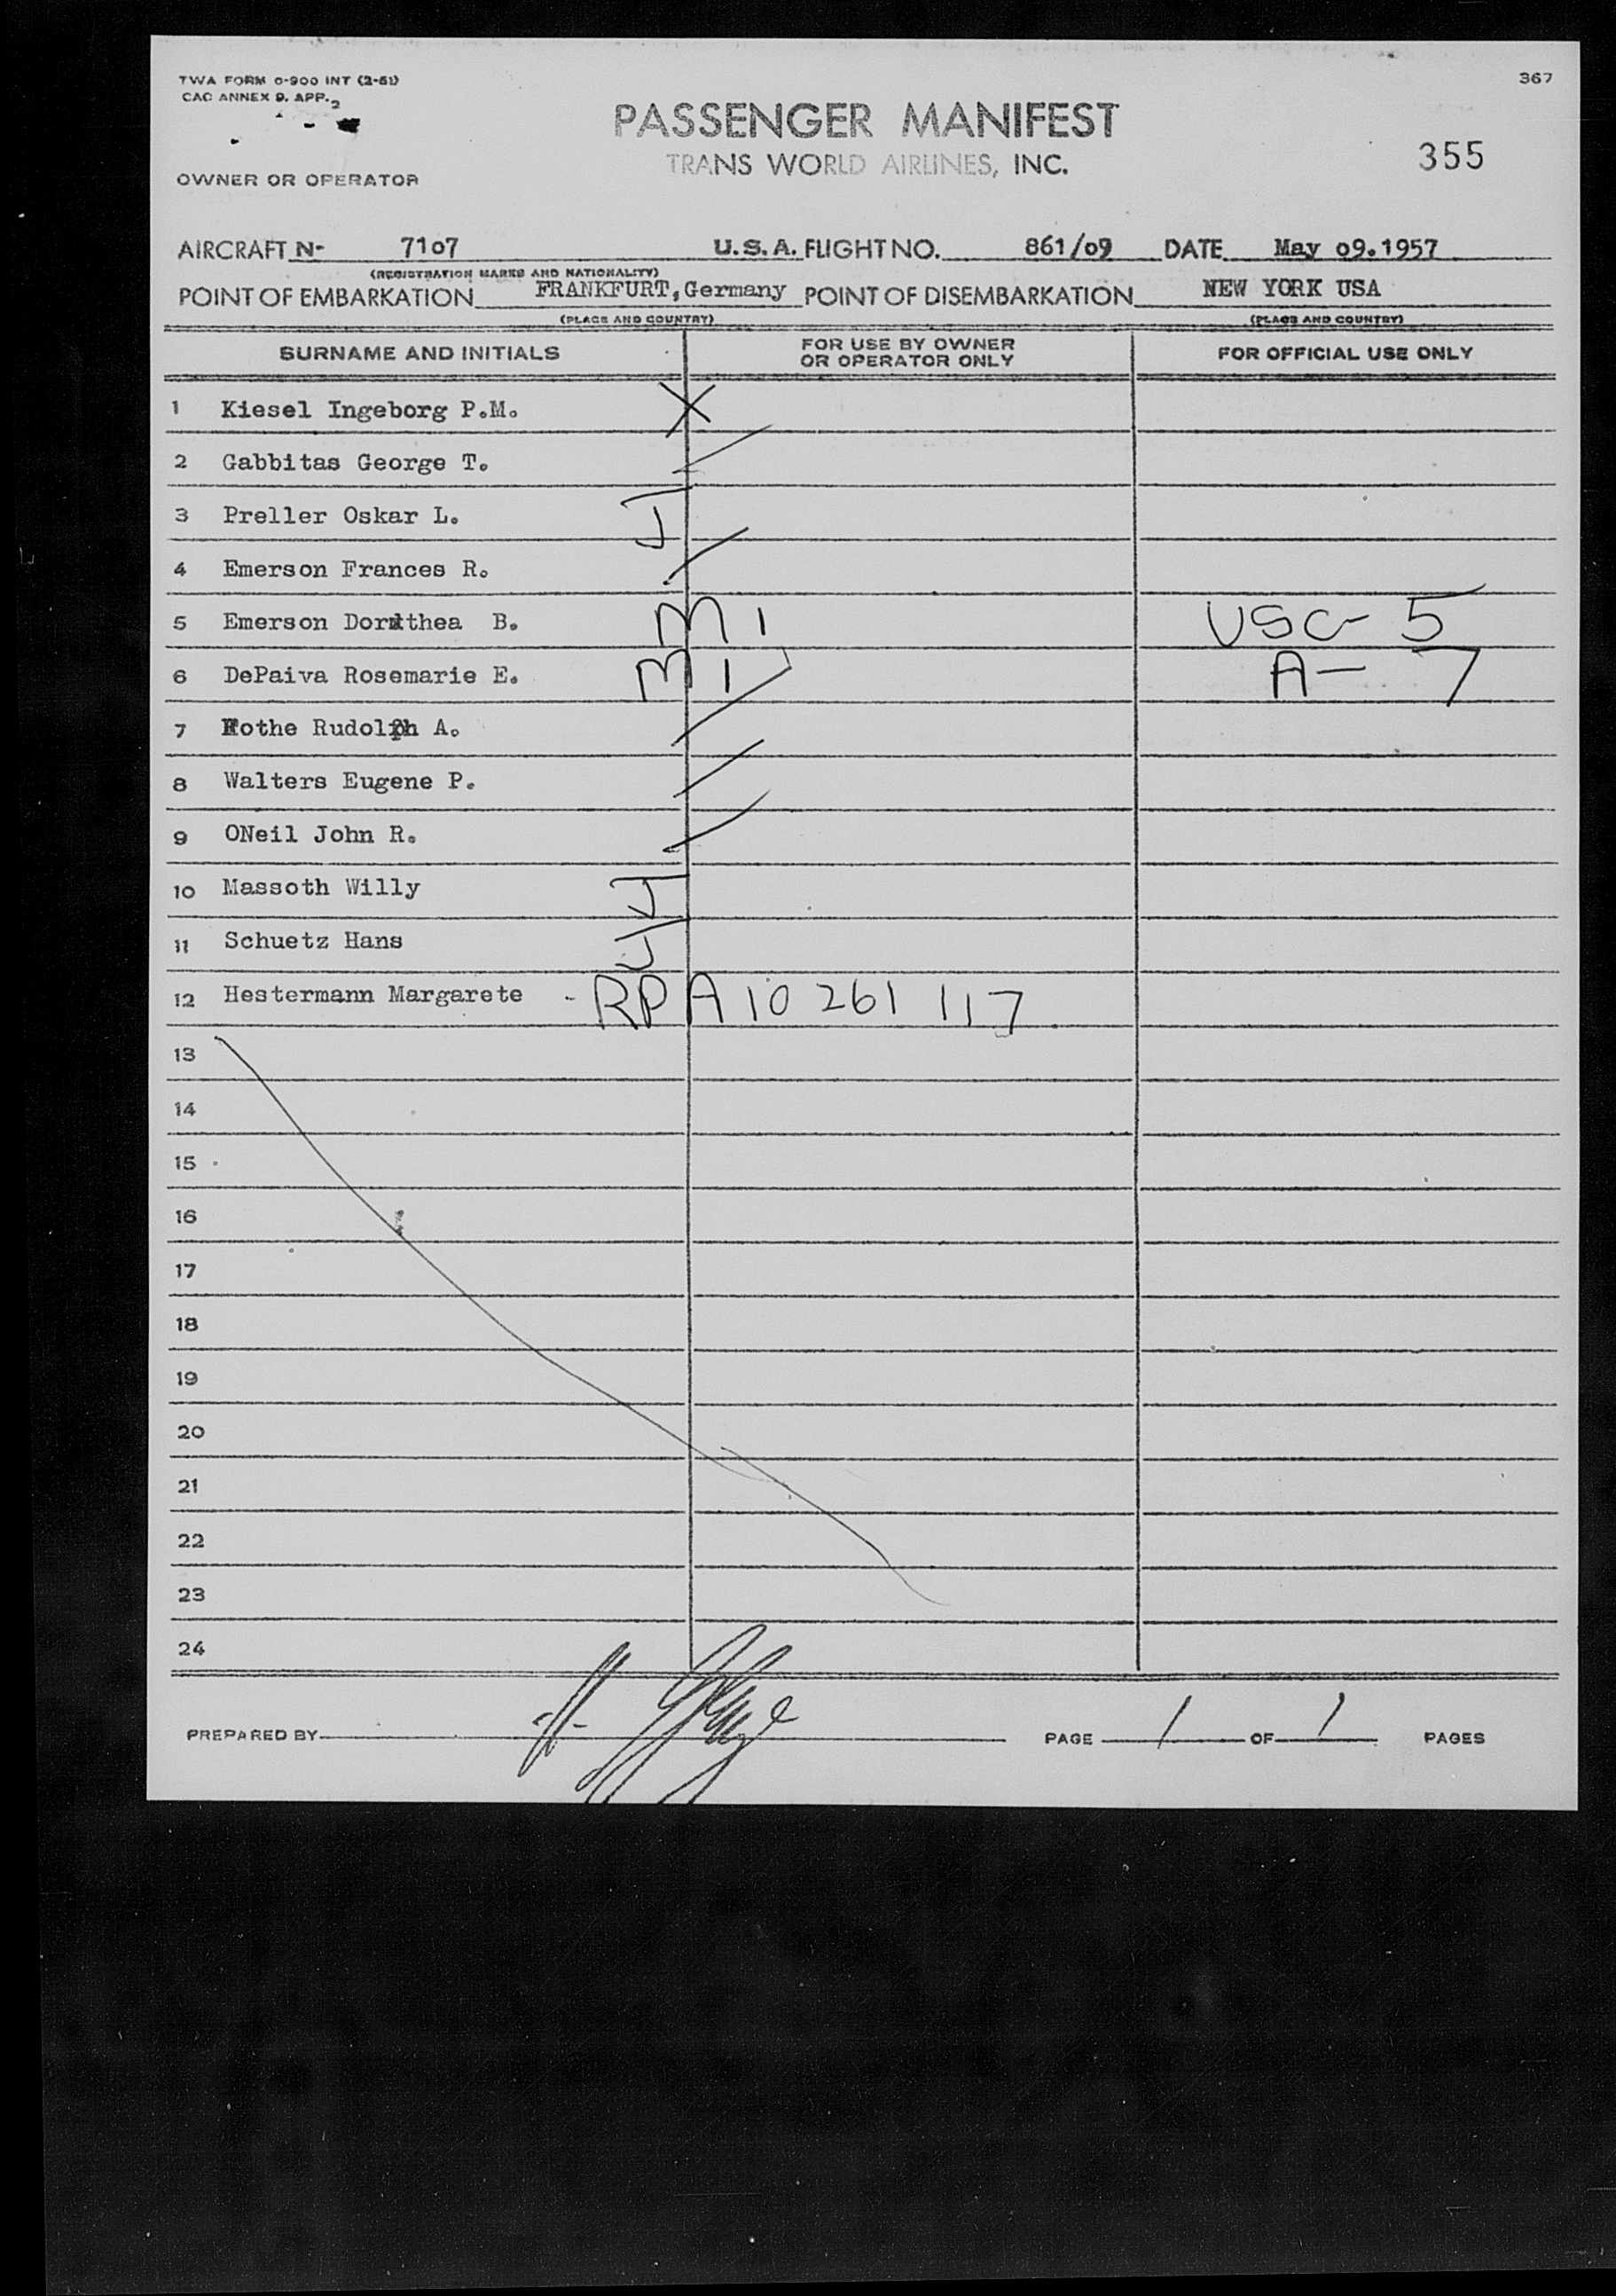 TWA FORM 0-900 INT (2-51)
CAO ANNEX 9. APP. 2
367
PASSENGER MANIFEST
TRANS WORLD AIRLINES, INC.
355
OWNER OR OPERATOR
AIRCRAFT N- 7107 U.S.A. FLIGHT NO. 861/09 DATE May 09.1957
(REGISTRATION MARKS AND NATIONALITY)
POINT OF EMBARKATION FRANKFURT, Germany POINT OF DISEMBARKATION NEW YORK USA
(PLACE AND COUNTRY) (PLACE AND COUNTRY)
SURNAME AND INITIALS FOR USE BY OWNER OR OPERATOR ONLY FOR OFFICIAL USE ONLY
1 Kiesel Ingeborg P.M. X
2 Gabbitas George T.
3 Preller Oskar L. J
4 Emerson Frances R.
5 Emerson Dorothea B. M 1 USC- 5
6 DePaiva Rosemarie E. M 1 A- 7
7 Rothe Rudolph A.
8 Walters Eugene P.
9 ONeil John R.
10 Massoth Willy J
11 Schuetz Hans J
12 Hestermann Margarete - RP A 10 261 117
13
14
15
16
17
18
19
20
21
22
23
24
PREPARED BY PAGE 1 OF 1 PAGES